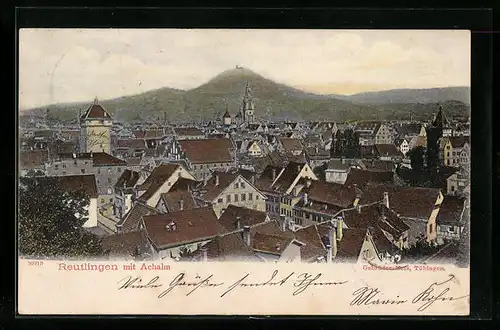 Reutlingen mit Achalm
Gebr. Metz, Tübingen.
Viele Grüße sendet Ihnen
Marie Kohn